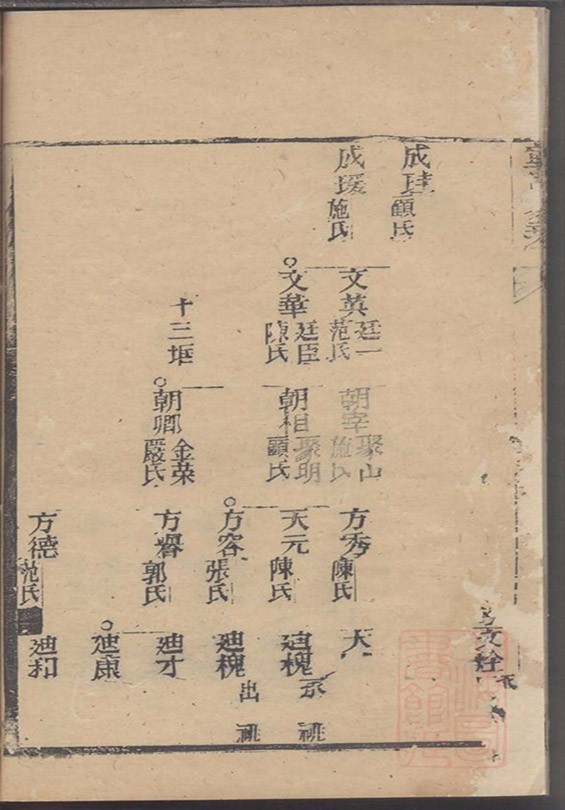 成珪 顧氏
成瑗 施氏
文英 廷一 范氏
文華 廷臣 陳氏
十三坵
朝宰 聚山 施氏
朝相 聚明 顧氏
朝卿 金榮 嚴氏
方秀 陳氏
天元 陳氏
方容 張氏
方譽 郭氏
方德 范氏
迪槐 承祧
迪槐 出祧
迪才
迪康
迪和